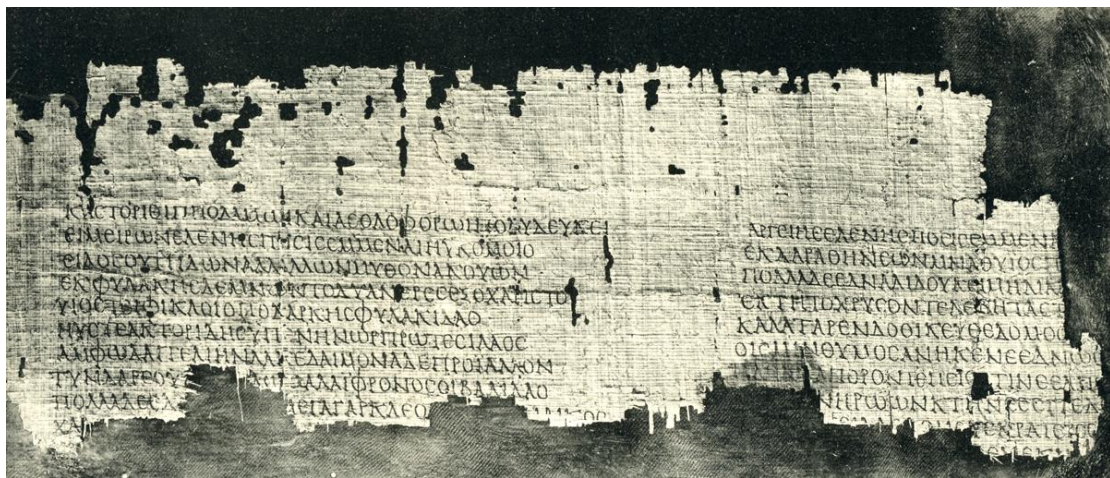 ΚΑΣΤΟΡΙΘΙΠΠΟΔΑΜΩΙΚΑΙΑΕΘΛΟΦΟΡΩΙΠΟΛΥΔΕΥΚΕΙ
ΕΙΜΕΙΡΩΝΕΛΕΝΗΣΠΟΣΙΣΕΜΜΕΝΑΙΗΥΚΟΜΟΙΟ
ΕΙΔΟΣΟΥΤΙΙΔΩΝΑΛΛΑΛΛΩΝΜΥΘΟΝΑΚΟΥΩΝ
ΕΚΦΥΛΑΚΗΣΔΕΜΝΩΝΤΟΔΥΑΝΕΡΕΣΕΞΟΧΑΡΙΣΤΟΙ
ΥΙΟΣΤΙΦΙΚΛΟΙΟΠΟΔΑΡΚΗΣΦΥΛΑΚΙΔΑΟ
ΗΥΣΤΕΑΚΤΟΡΙΔΗΣΥΠΕΡΗΝΩΡΠΡΩΤΕΣΙΛΑΟΣ
ΑΜΦΩΔΑΓΓΕΛΙΗΝΛΑΚΕΔΑΙΜΟΝΑΔΕΠΡΟΙΑΛΛΟΝ
ΤΥΝΔΑΡΕΟΥ ΑΔΑΙΦΡΟΝΟΣΟΙΒΑΛΙΔΑΟ
ΠΟΛΛΑΔΕΕΔ ΜΕΓΑΓΑΡΚΛΕΟ ΝΑΙΚΟΣ
ΧΑΛ
ΑΡΓΕΙΗΣΕΛΕΝΗΣΠΟΣΙΣΕΜΜΕΝΑ
ΕΚΔΑΡΑΘΗΝΕΩΝΜΝΑΘΥΙΟΣ
ΠΟΛΛΑΔΕΕΔΝΑΔΙΔΟΥΚΕΙΜΗΛΙΑ
ΕΚΤΗΤΟΧΡΥΣΟΝΤΕΛΕΒΗΤΑΣΤ
ΚΑΛΑΤΑΡΕΝΔΟΘΙΚΕΥΘΕΔΟΜΟΣ
ΟΙΣΜΙΝΘΥΜΟΣΑΝΗΚΕΝΕΕΔΝΩΣ
ΠΟΡΟΝΤΕΠΕΙΟ ΤΙΝΕΕΛΠ
ΗΡΩΩΝΚΤΗΝΕΣΣΙΤΕΔ